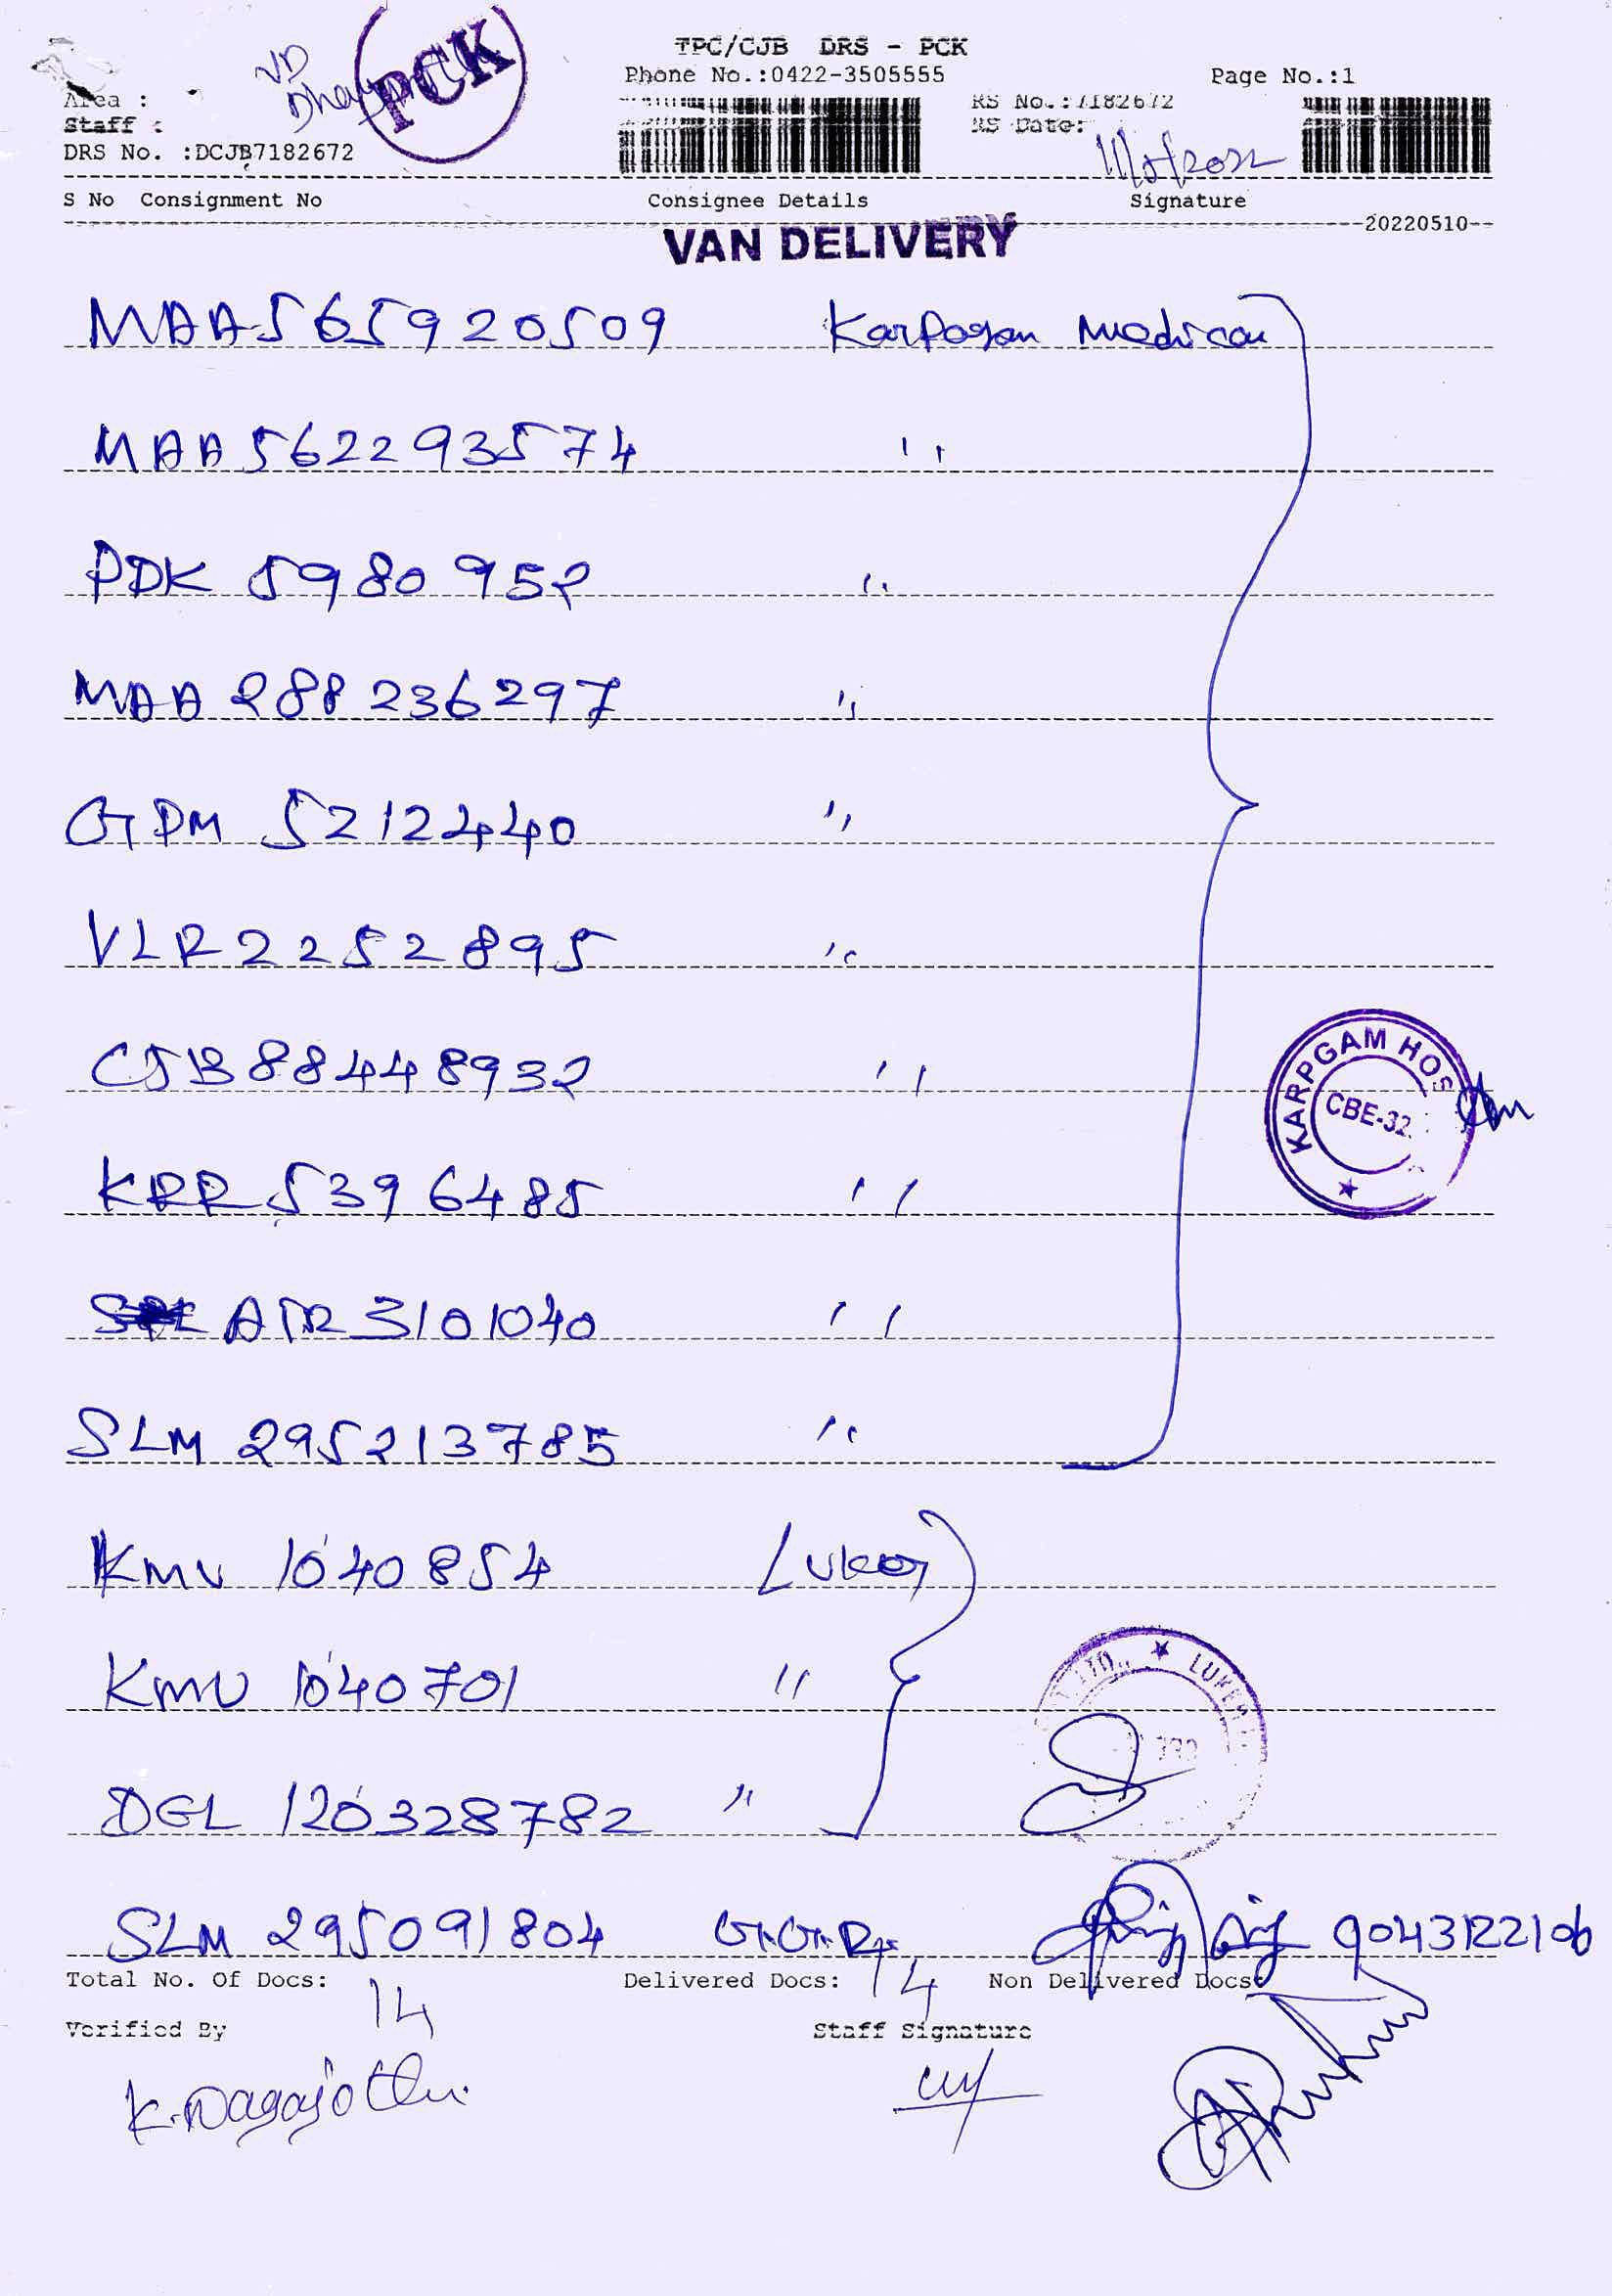 TPC/CJB DRS - PCK
Phone No.:0422-3505555 Page No.:1
VD
PCK
Area :
RS No.:7182672
Staff :
RS Date:
DRS No. :DCJB7182672
S No Consignment No Consignee Details Signature
20220510
VAN DELIVERY
MAA565920509 Karpogam Medical
MAA562293574 "
PDK 5980952 "
MAA 288236297 "
GPM 5212440 "
VLR2252895 "
CJB88448932 "
KARPGAM HOS
CBE-32
KRR 5396485 "
3101040 "
SLM 295213785 "
KMU 1040854
KMU 1040701 "
LTD., ★ LUKER
DGL 120328782 "
SLM 295091804 9043122106
Total No. Of Docs: 14 Delivered Docs: 14 Non Delivered Docs:
Verified By Staff Signature
K.Nagajothi